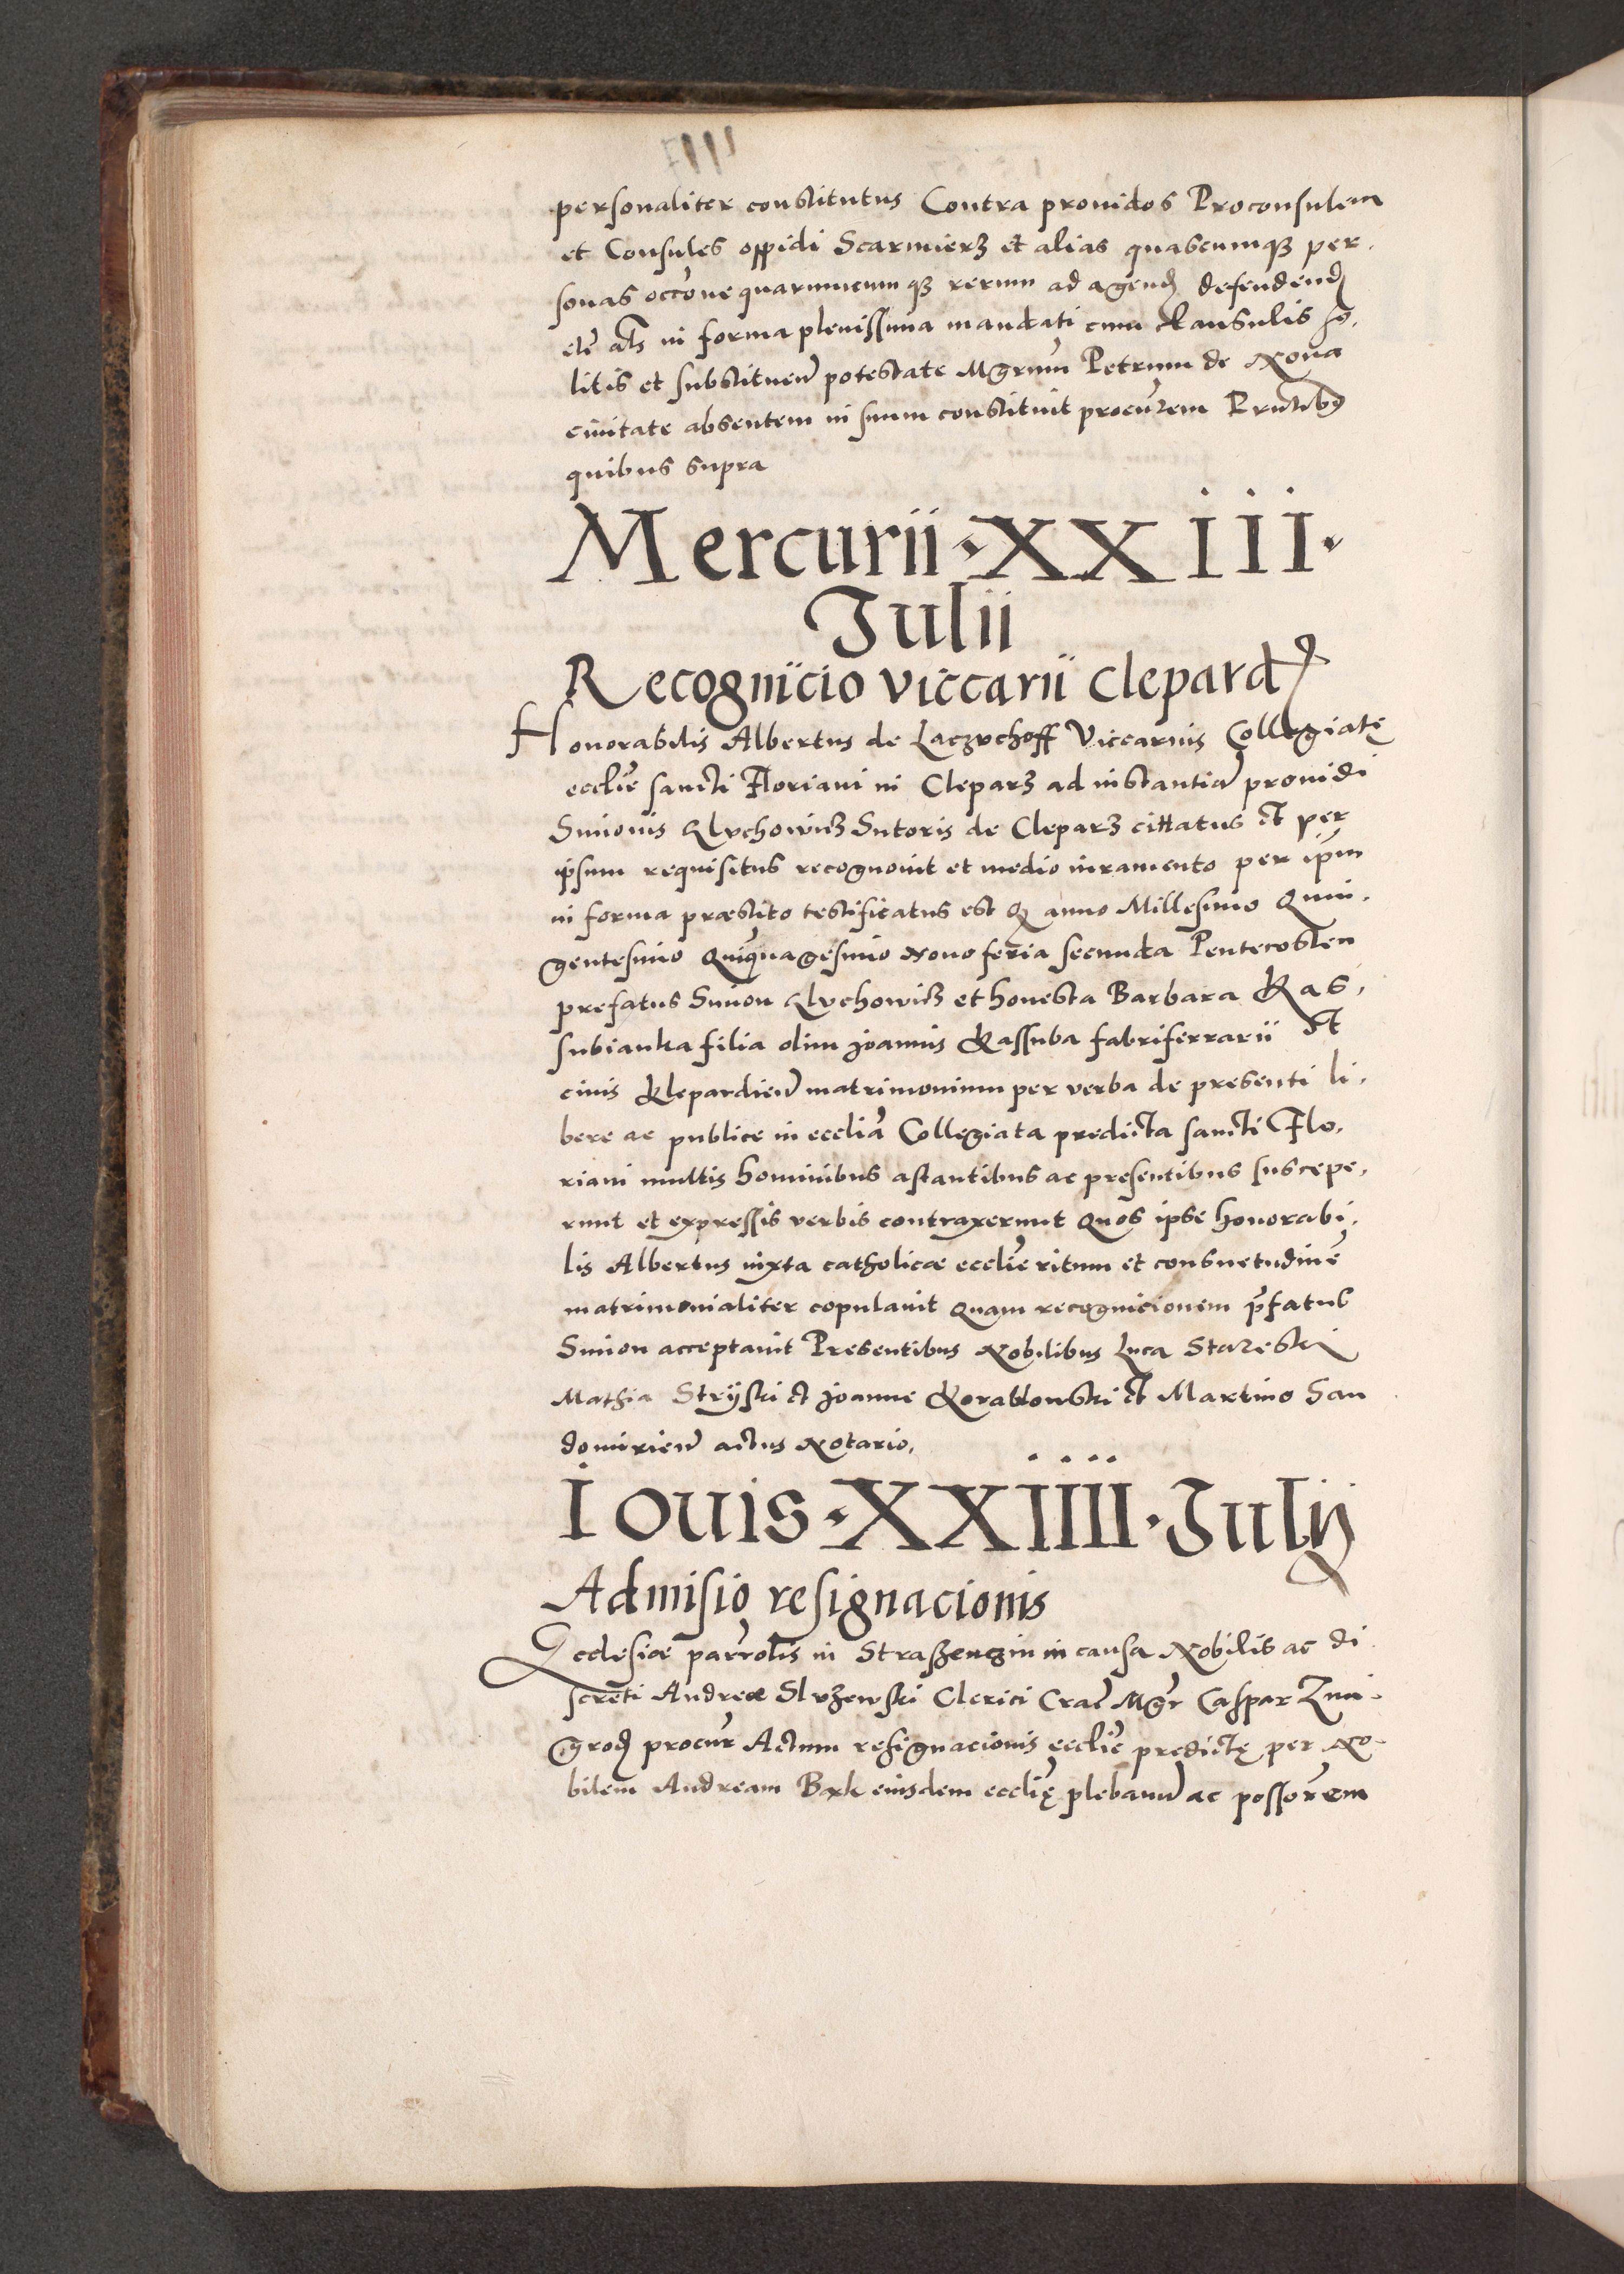 personaliter constitutus Contra prouidos Proconsulem
et Consules oppidi Scarmierz et alias quascumqꝫ per,
sonas occōne quarumcumqꝫ rerum ad agendꝭ defendendꝭ
etc̄ als in forma plenissima mandati cum clausulis so,
litis et substituen̄ potestate Mgrum̄ Petrum de Noua
ciuitate absentem in suum constituit procūrem Prn̄tibꝰ
quibus supra
Mercurii · XXIII ·
Julii
Recogniicio viccarii Clepardꝭ
Honorabilis Albertus de Laczvchoff Viccarius Collegiatę
eccliē sancti Floriani in Cleparz ad instantiā prouidi
Simonis Glvchowicz Sutoris de Cleparz cittatus et per
ipsum requisitus recognouit et medio iuramento per ip̄m
in forma præstito testificatus est Qꝫ anno Millesimo Quin,
gentesimo Quīquagesimo Nono feria secunda Pentecosten
prefatus Simon Glvchowicz et honesta Barbara Kas,
subianka filia olim Joannis Kassuba fabriferrarii et
ciuis Klepardien̄ matrimonium per verba de presenti li,
bere ac publice in eccliā Collegiata predicta sancti Flo,
riani multis hominibus astantibus ac presentibus suscepe,
runt et expressis verbis contraxerunt Quos ipse honorabi,
lis Albertus iuxta catholicæ eccliē ritum et consuetudinē
matrimonialiter copulauit Quam recognicionem p̄fatus
Simon acceptauit Presentibus Nobilibus Luca Stareski
Mathia Strijski et Joanne Korablowski et Martino San
domirien̄ actus Notario,
Iouis · XXIIII · Julij
Admisio resignacionis
Ecclesiæ parrōlis in Straszenczin in causa Nobilis ac di
scrēti Andreæ Slvzewski Clerici Crac̄ Mgr̄ Caspar Zmi-
grodꝭ procur̄ Actum resignacionis eccliē predictę per No-
bilem Andream Bxk eiusdem eccliē plebanū ac possorēm